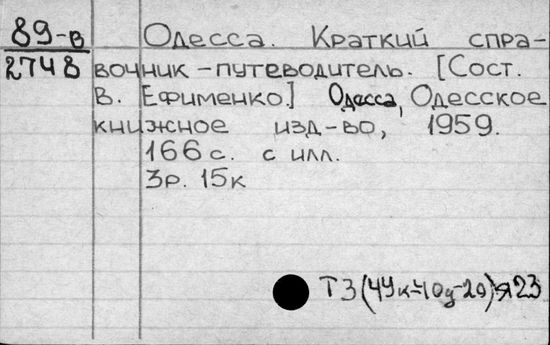 89-в Одесса. Краткий спра-
2748 вочник-путеводитель. [Сост.
В. Ефименко.] Одесса, Одесское
книжное изд-во, 1959.
166 с. с илл.
3р. 15к
Т3(4Ук-4Од-2О)я23